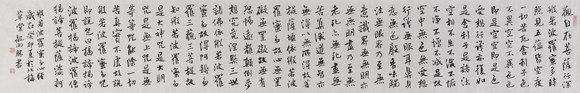 觀自在菩薩行深
般若波羅蜜多時
照見五蘊皆空度
一切苦厄舍利子色
不異空空不異色色
即是空空即是色
受想行識亦復如
是舍利子是諸法
空相不生不滅不
垢不淨不增不減
是故空中無色無
受想行識無眼耳
鼻舌身意無色聲
香味觸法無眼界
乃至無意識界
無無明亦無無明
盡乃至無老死
亦無老死盡無苦
集滅道無智亦無
得以無所得故菩
提薩埵依般若波
羅蜜多故心無罣
礙無罣礙故無有
恐怖遠離顛倒夢
想究竟涅槃三世
諸佛依般若波羅
蜜多故得阿耨多
羅三藐三菩提故
知般若波羅蜜多
是大神咒是大明
咒是無上咒是無
等等咒能除一切
苦真實不虛故說
般若波羅蜜多咒
即說咒曰揭諦揭諦
波羅揭諦波羅僧
揭諦菩提薩婆訶
般若波羅蜜多心經